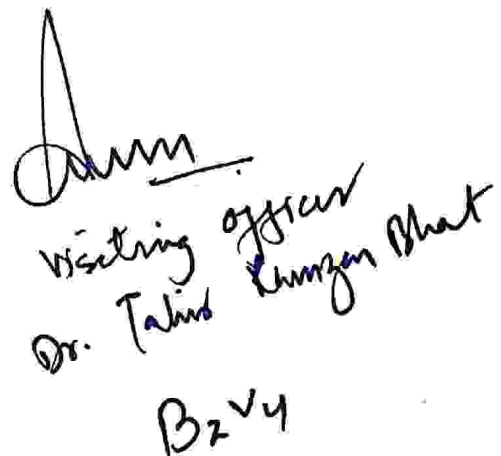 Visiting officer
Dr. Tahir Ramzan Bhat
B2V4